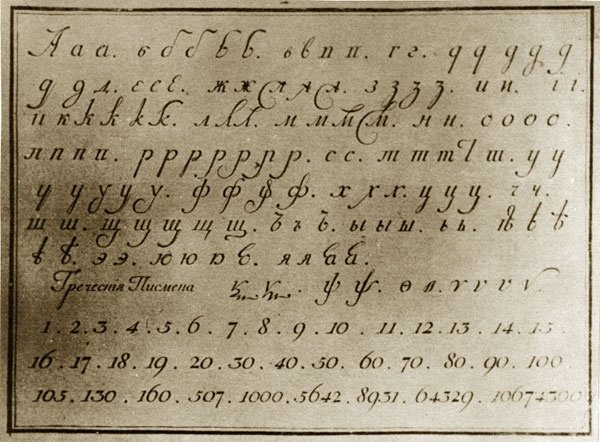 А а а . б б б б б . в в п п . г г . д д д д д
д д д . е е е . ж ж ж ж ж . з з з з . и и . i i .
и к к к к к . л л л . м м м м . н н . о о о о .
п п п п . р р р р р р р . с с . т т т т т . у у
у у у у у . ф ф ф ф . х х х . ц ц ц . ч ч .
ш ш . щ щ щ щ щ . ъ ъ . ы ы ы . ь ь . ѣ ѣ ѣ
ѣ ѣ . э э . ю ю ю ю . я я я я .
Греческiя Писмена ѯ ѯ . ѱ ѱ . ѳ ѳ . ѵ ѵ ѵ ѵ .
1 . 2 . 3 . 4 . 5 . 6 . 7 . 8 . 9 . 10 . 11 . 12 . 13 . 14 . 15 .
16 . 17 . 18 . 19 . 20 . 30 . 40 . 50 . 60 . 70 . 80 . 90 . 100
105 . 130 . 160 . 507 . 1000 . 5642 . 8931 . 64329 . 10674300